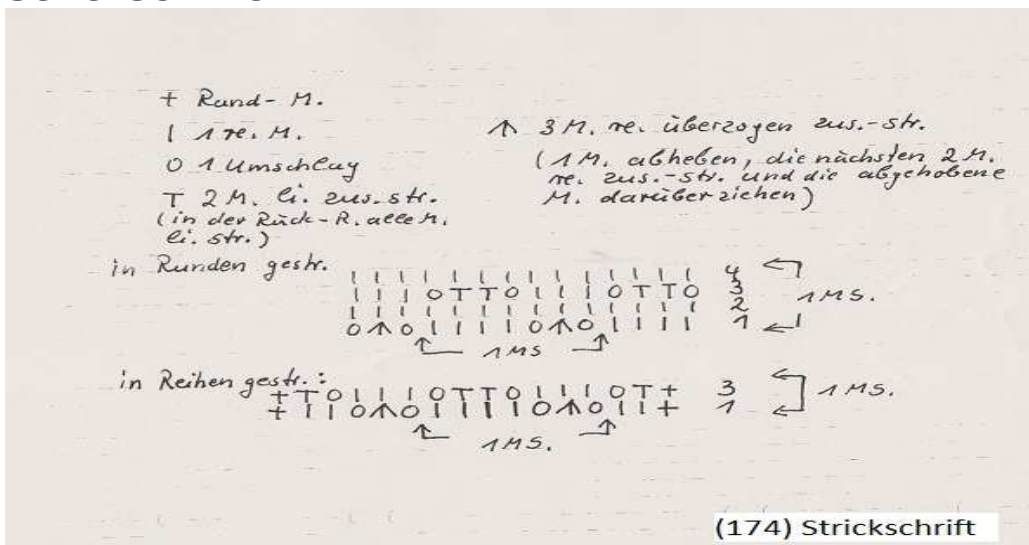 + Rund- M.
| 1 re. M.
O 1 Umschlag
T 2 M. li. zus. str.
(in der Rück-R. alle M.
li. str.)
↑ 3 M. re. überzogen zus.-str.
(1 M. abheben, die nächsten 2 M.
re. zus.-str. und die abgehobene
M. darüber ziehen)
in Runden gestr.
| | | | | | | | | | | | | | 4
| | | O T T O | | | O T T O 3
| | | | | | | | | | | | | | 2
O ↑ O | | | | O ↑ O | | | | 1
1 MS.
1 MS
in Reihen gestr.:
+ T O | | | O T T O | | | O T + 3
+ | | O ↑ O | | | | O ↑ O | | + 1
1 MS.
1 MS.
(174) Strickschrift